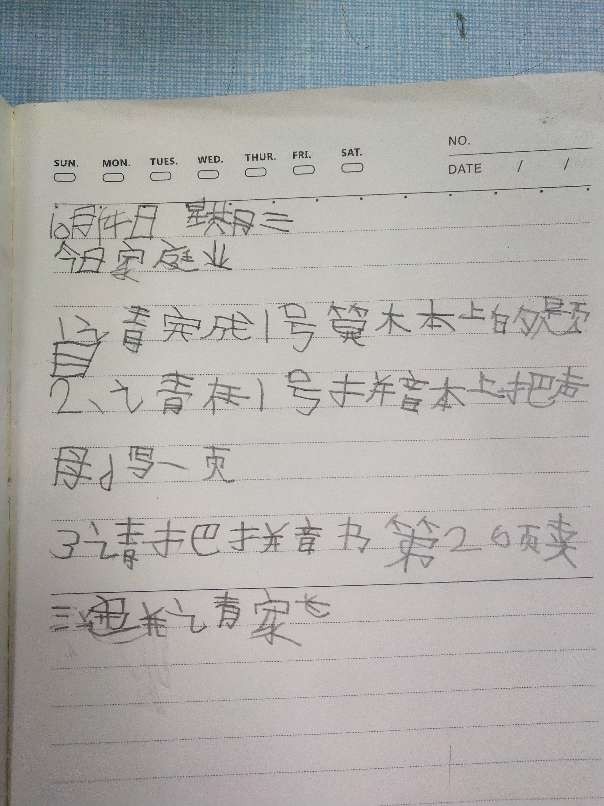 NO.
SUN. MON. TUES. WED. THUR. FRI. SAT.
DATE / /
10月14日 星期三
今日家庭业
1、请完成1号算术本上的题目
2、请在1号拼音本上把声
母d写一页
3请把拼音书第26页读
三遍并请家长